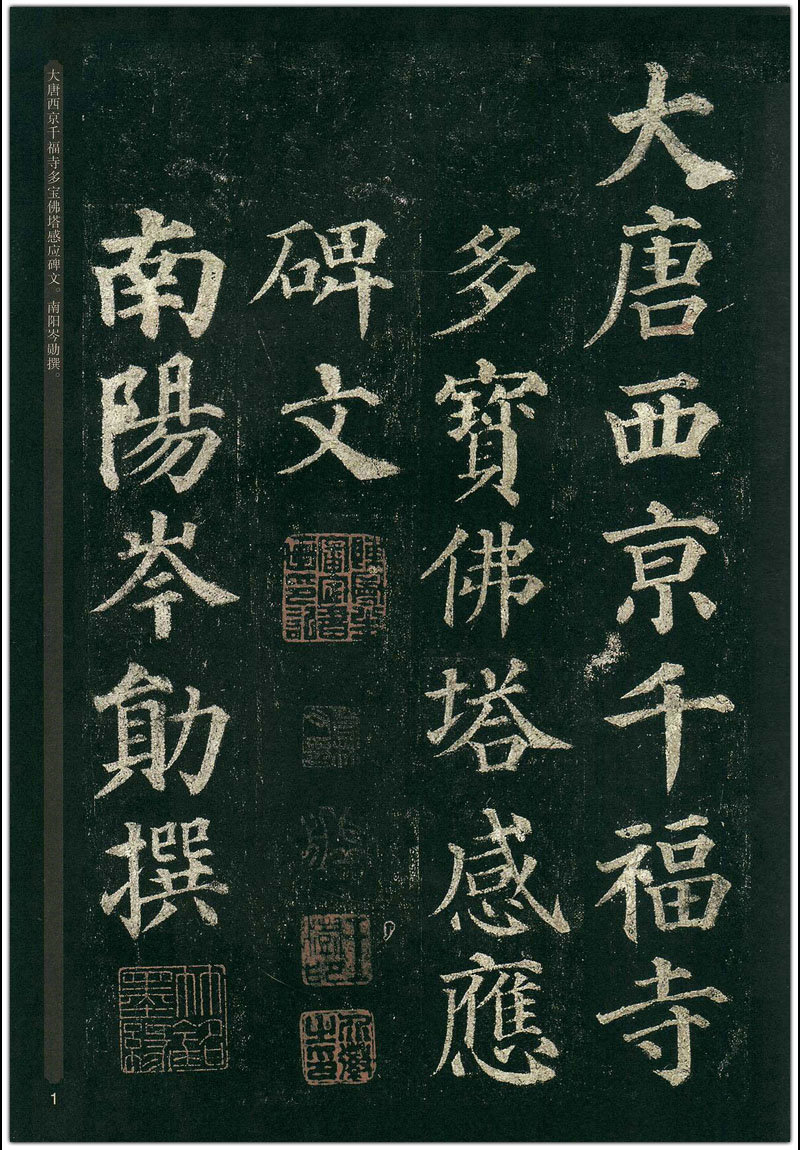 大唐西京千福寺
多寶佛塔感應
碑文
南陽岑勛撰
大唐西京千福寺多宝佛塔感应碑文。南阳岑勋撰。
1